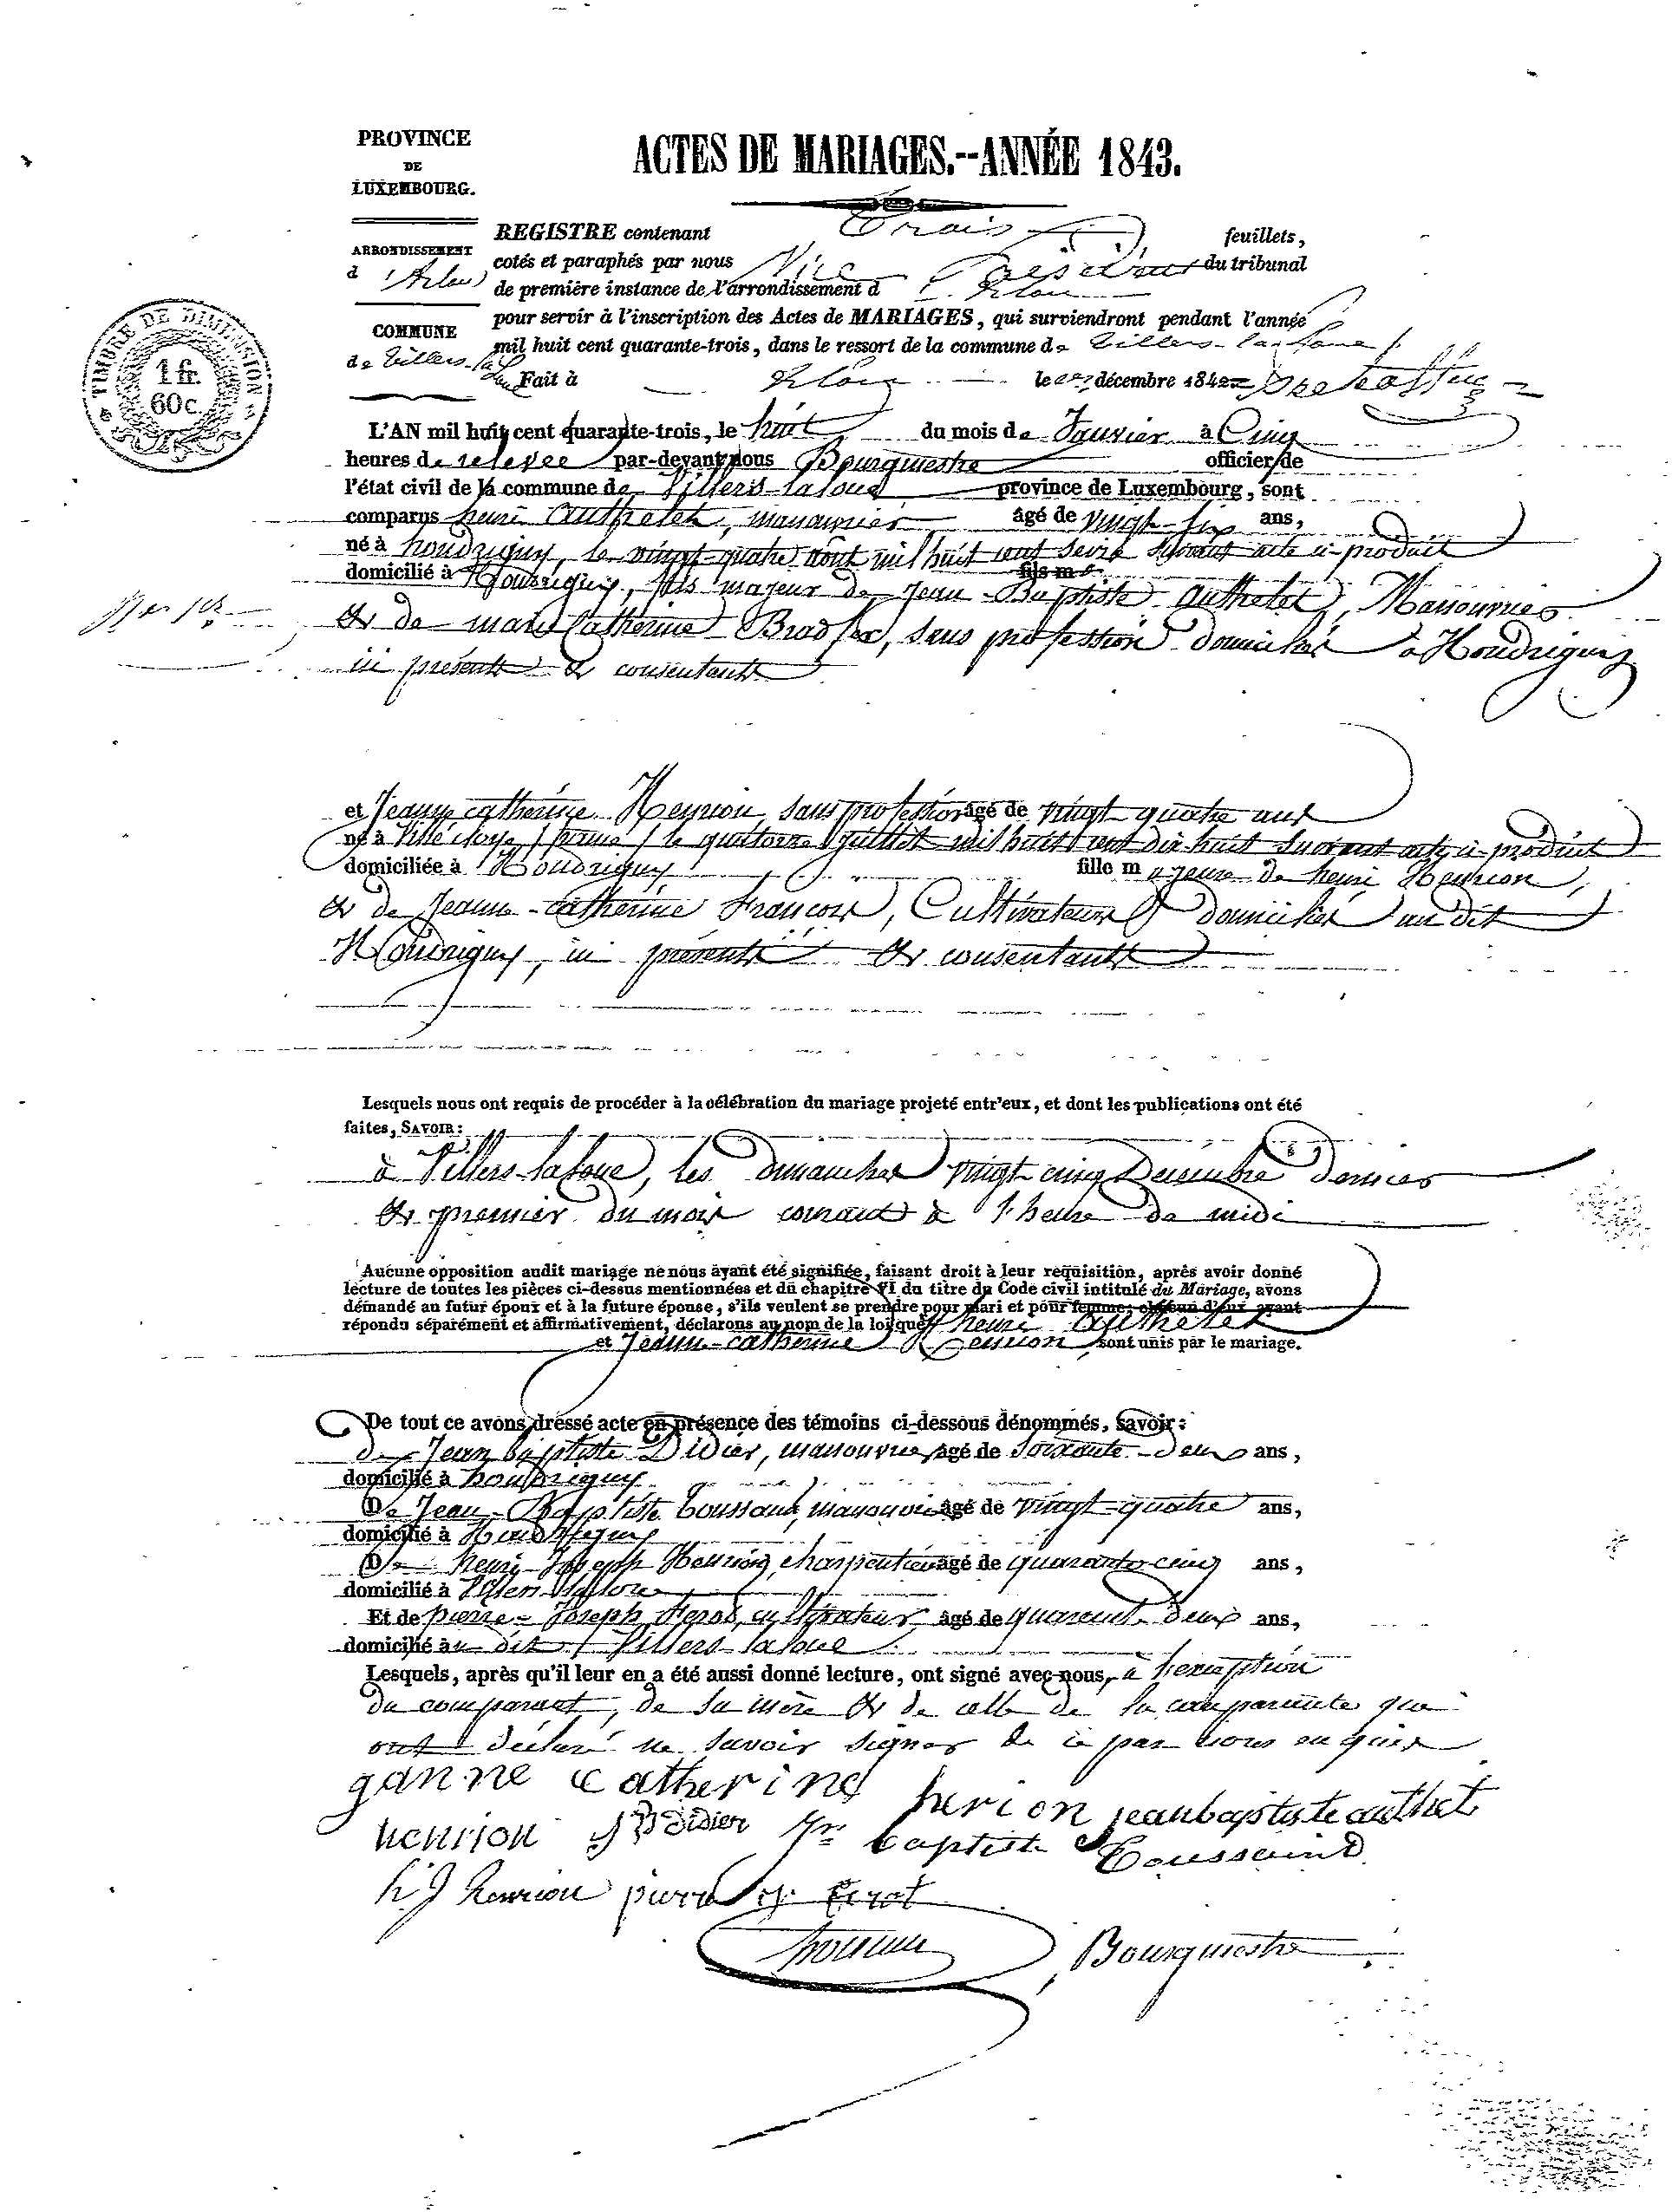 PROVINCE
DE
LUXEMBOURG.
ACTES DE MARIAGES.--ANNÉE 1843.
ARRONDISSEMENT
d'Arlon
COMMUNE
de Villers-la-Loue
TIMBRE DE DIMENSION
1 fr.
60 c.
REGISTRE contenant Trois feuillets,
cotés et paraphés par nous Vice Président du tribunal
de première instance de l'arrondissement d Arlon
pour servir à l'inscription des Actes de MARIAGES, qui surviendront pendant l'année
mil huit cent quarante-trois, dans le ressort de la commune de Villers-la-Loue
Fait à Arlon le décembre 1842
L'AN mil huit cent quarante-trois, le huit du mois de Janvier à Cinq
heures de relevée par-devant nous Bourgmestre officier de
l'état civil de la commune de Villers-laloue province de Luxembourg, sont
comparus henri authelet, manouvrier âgé de vingt-six ans,
né à houdrigny, le vingt-quatre août mil huit cent seize suivant acte ci-produit
domicilié à Houdrigny, fils majeur de Jean-Baptiste authelet, Manouvrier
& de marie Catherine, sans profession domiciliés à Houdrigny
ici présents & consentants
et Jeanne catherine Henrion, sans profession âgé de vingt quatre ans
né à Villé cloye, le quatorze juillet mil huit cent dix huit suivant acte ci-produit
domiciliée à Houdrigny fille majeure de henri Henrion,
& de Jeanne-catherine François, Cultivateurs domiciliés au dit
Houdrigny, ici présents & consentants
Lesquels nous ont requis de procéder à la célébration du mariage projeté entr'eux, et dont les publications ont été
faites, SAVOIR:
à Villers-laloue, les dimanches vingt cinq Decembre dernier
& premier du mois courant à l'heure de midi
Aucune opposition audit mariage ne nous ayant été signifiée, faisant droit à leur requisition, après avoir donné
lecture de toutes les pièces ci-dessus mentionnées et du chapitre VI du titre du Code civil intitulé du Mariage, avons
demandé au futur époux et à la future épouse, s'ils veulent se prendre pour mari et pour femme; chacun d'eux ayant
répondu séparément et affirmativement, déclarons au nom de la loi que henri authelet
et Jeanne-catherine Henrion sont unis par le mariage.
De tout ce avons dressé acte en présence des témoins ci-dessous dénommés, savoir:
de Jean baptiste Didier, manouvrier âgé de soixante-deux ans,
domicilié à houdrigny
De Jean-Baptiste Toussaint, manouvrier âgé de vingt-quatre ans,
domicilié à Houdrigny
De henri-Joseph Henrion, charpentier âgé de quarante cinq ans,
domicilié à Villers-laloue
Et de pierre-Joseph, cultivateur âgé de quarante deux ans,
domicilié au dit Villers-laloue
Lesquels, après qu'il leur en a été aussi donné lecture, ont signé avec nous, à l'exception
du comparant, de sa mère & de celle de la comparante qui
ont déclaré ne savoir signer de ce par nous enquis
ganne catherine herion jeanbaptiste authelet
henrion JB didier Jn baptiste Toussaint
h J henrion pierre
Bourgmestre